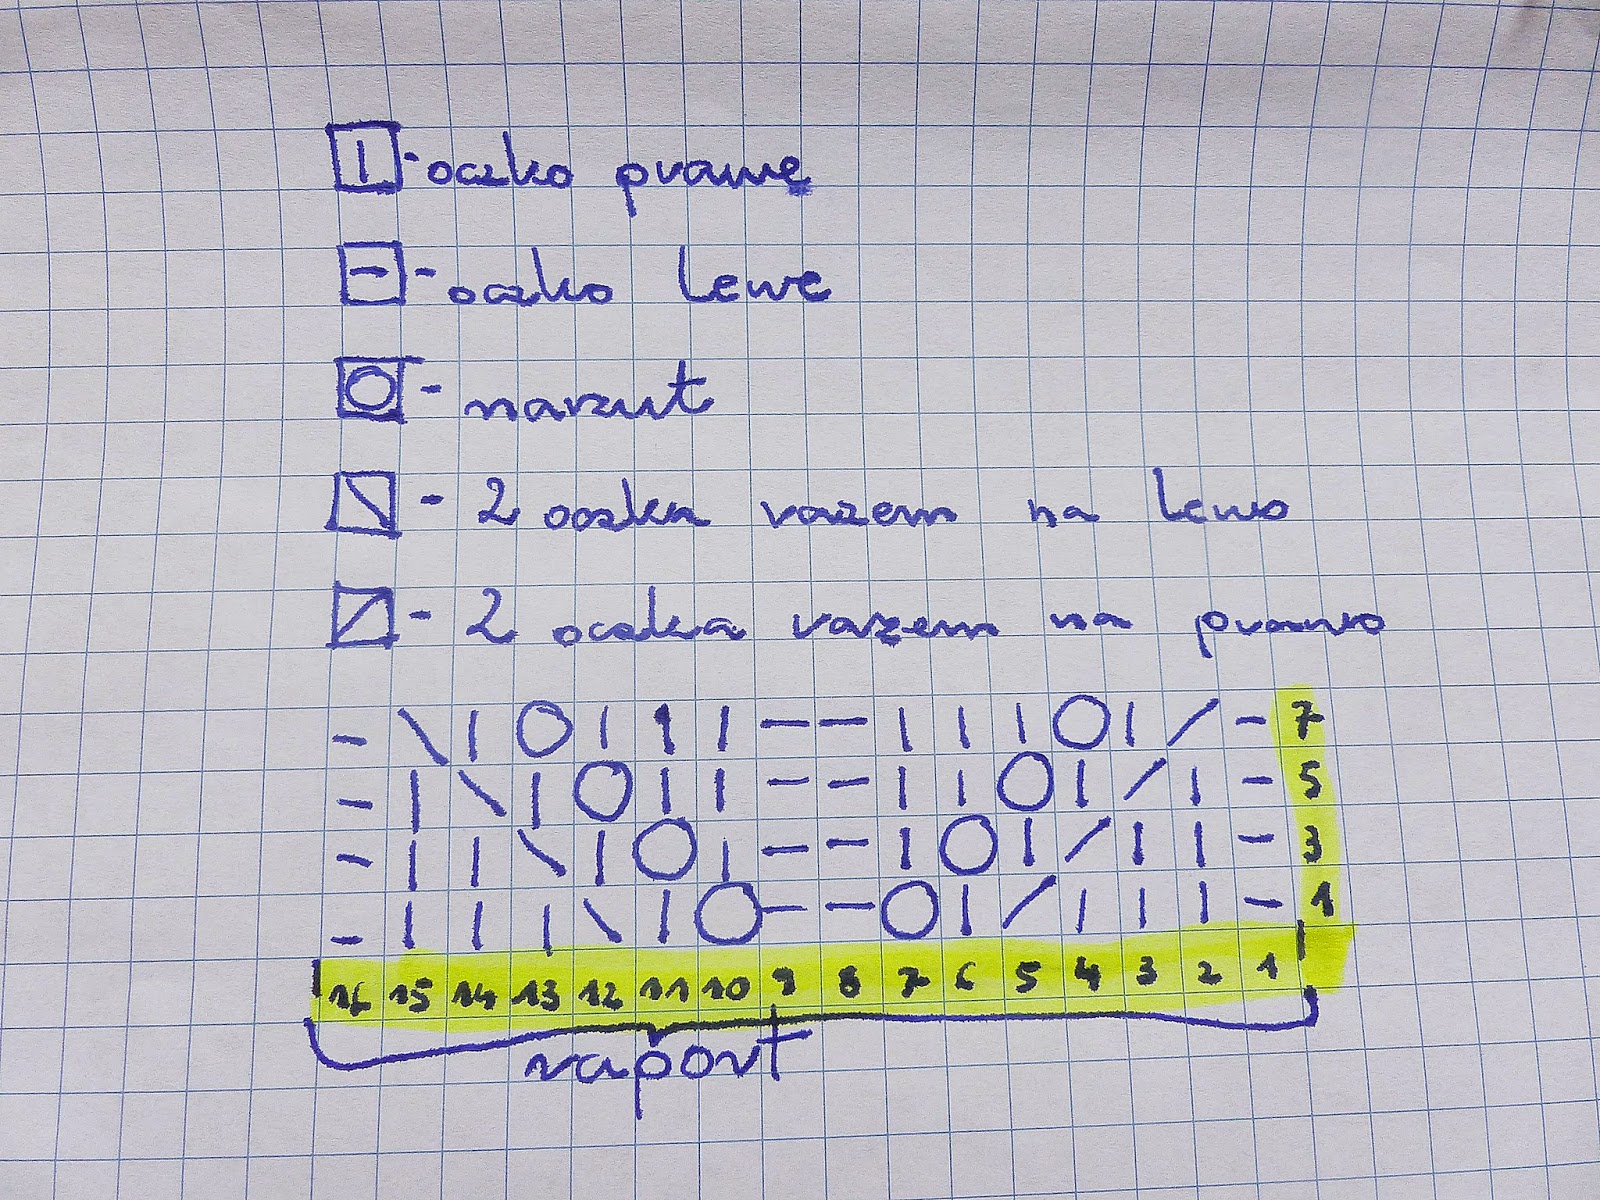 | - oczko prawe
− - oczko lewe
○ - narzut
\ - 2 oczka razem na lewo
/ - 2 oczka razem na prawo
− \ | ○ | | | − − | | | ○ | / − 7
− | \ | ○ | | − − | | ○ | / | − 5
− | | \ | ○ | − − | ○ | / | | − 3
− | | | \ | ○ − − ○ | / | | | − 1
16 15 14 13 12 11 10 9 8 7 6 5 4 3 2 1
raport